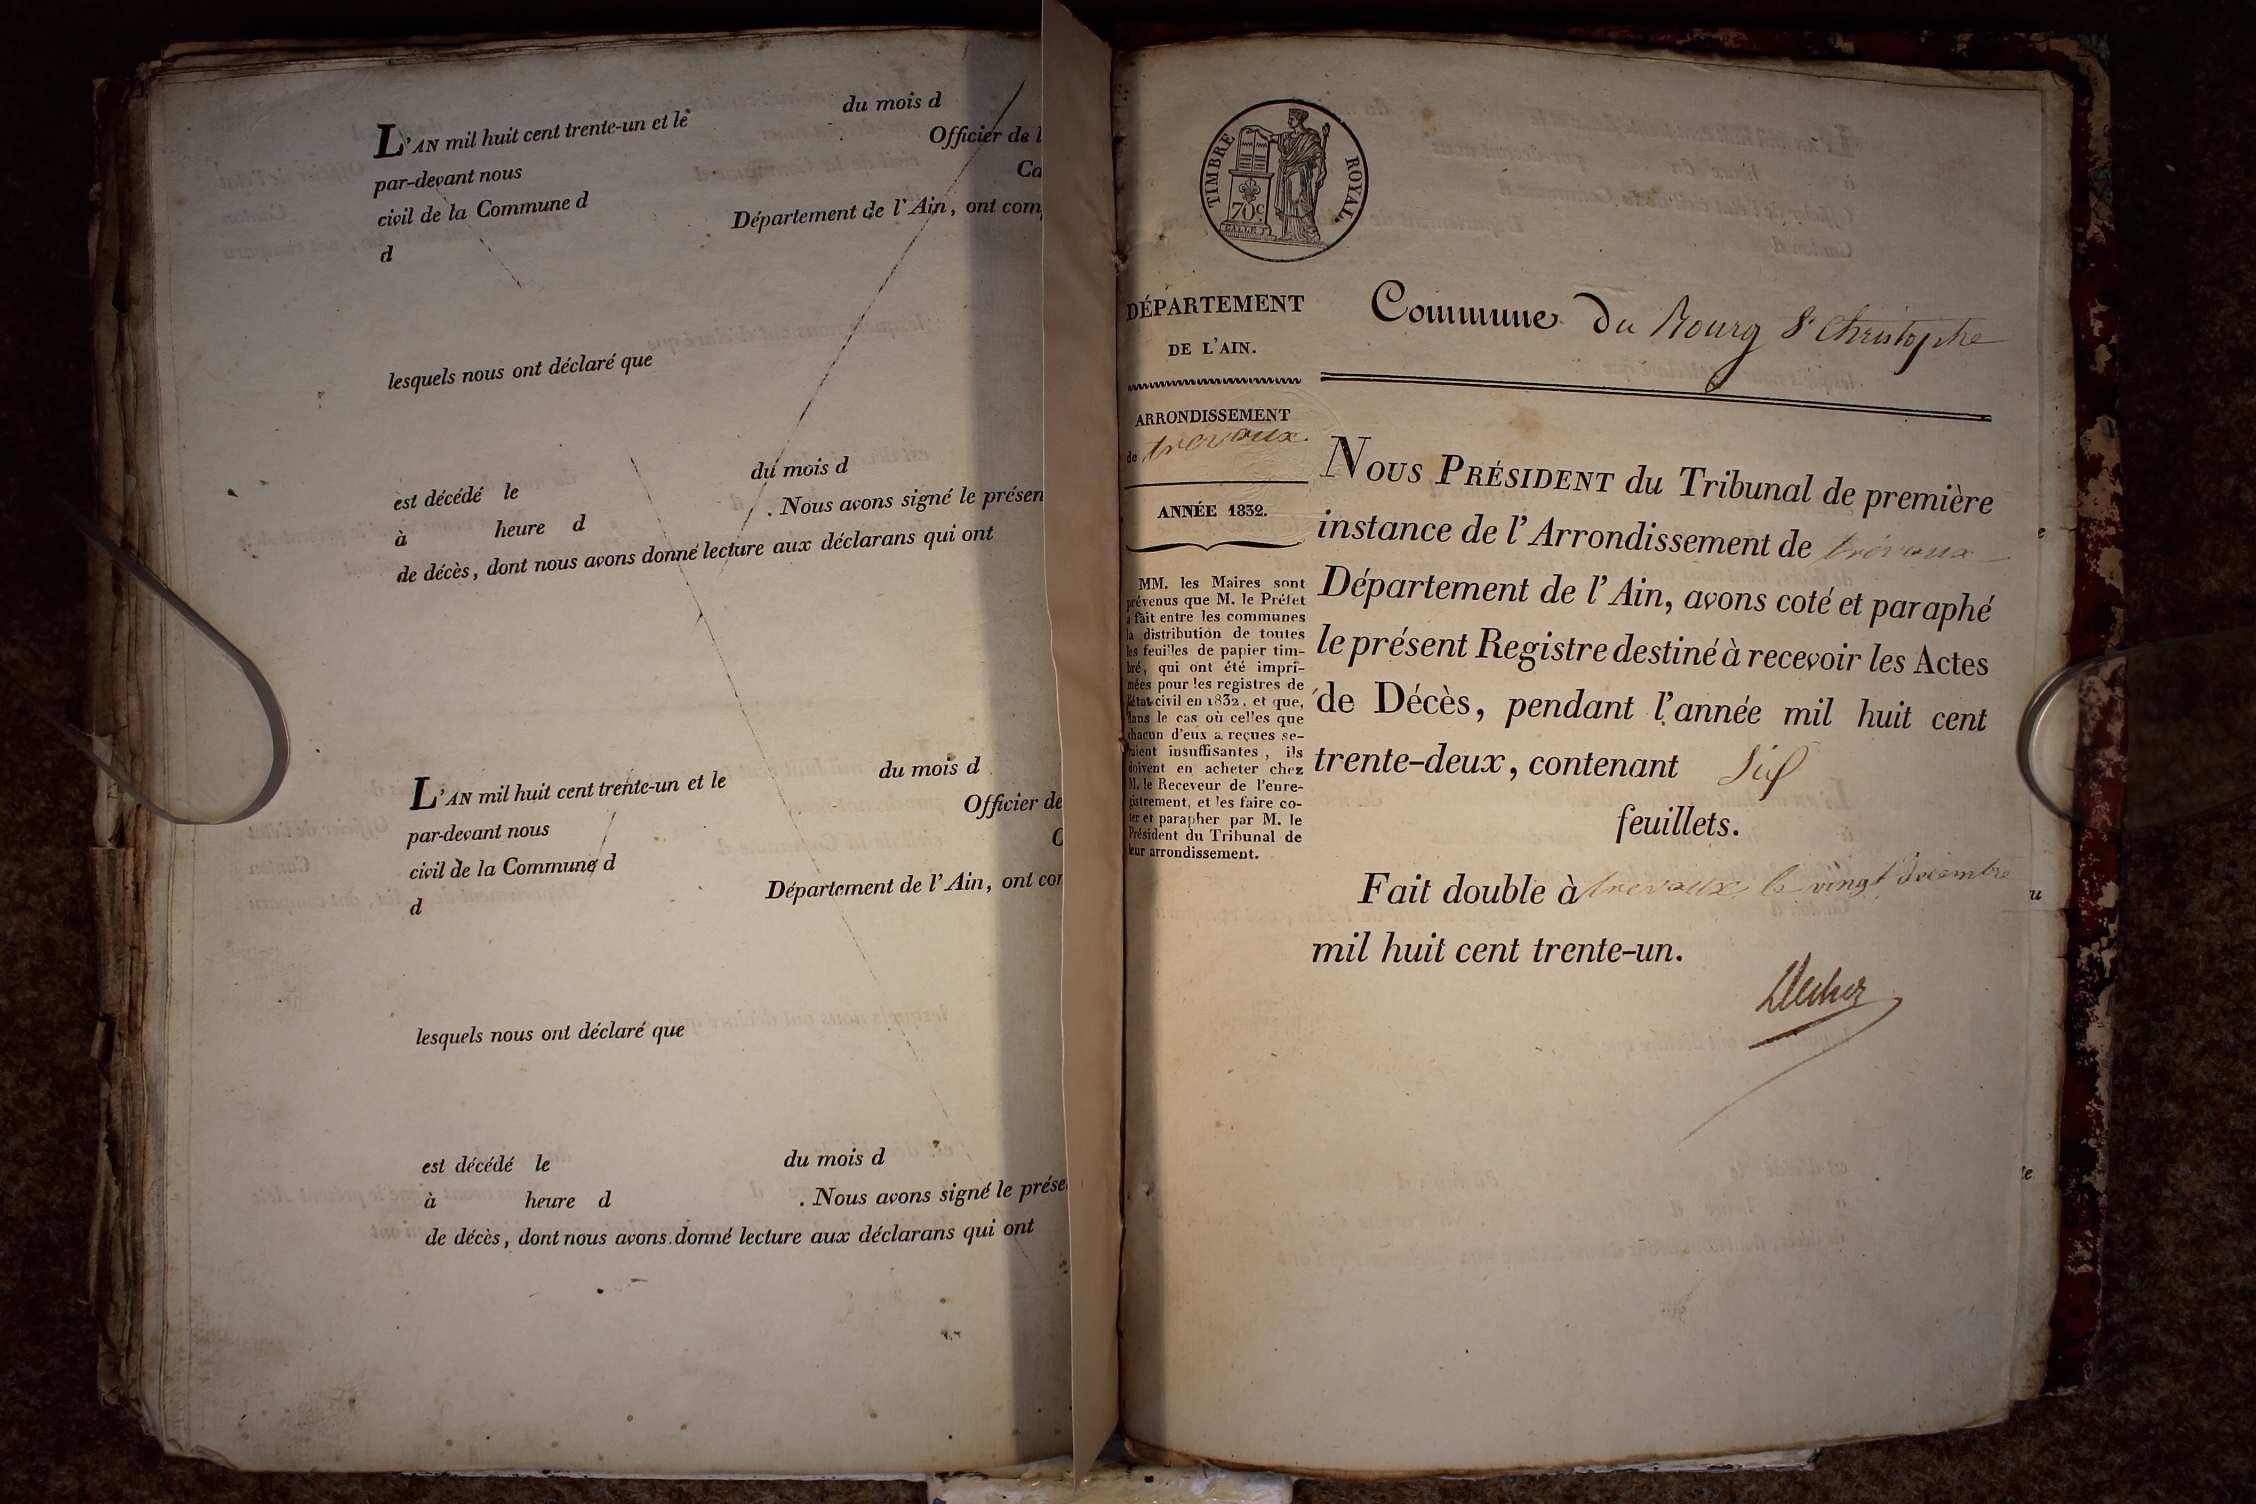 L'AN mil huit cent trente-un et le du mois d
par-devant nous Officier de l
civil de la Commune d Ca
d Département de l'Ain, ont com
lesquels nous ont déclaré que
est décédé le du mois d
à heure d . Nous avons signé le présen
de décès, dont nous avons donné lecture aux déclarans qui ont
L'AN mil huit cent trente-un et le du mois d
par-devant nous Officier de
civil de la Commune d C
d Département de l'Ain, ont con
lesquels nous ont déclaré que
est décédé le du mois d
à heure d . Nous avons signé le prése
de décès, dont nous avons donné lecture aux déclarans qui ont
TIMBRE ROYAL.
70c
DÉPARTEMENT
DE L'AIN.
ARRONDISSEMENT
de trévoux.
ANNÉE 1832.
MM. les Maires sont
prévenus que M. le Préfet
a fait entre les communes
la distribution de toutes
les feuilles de papier tim-
bré, qui ont été impri-
mées pour les registres de
l'état-civil en 1832, et que,
dans le cas où celles que
chacun d'eux a reçues se-
raient insuffisantes, ils
doivent en acheter chez
M. le Receveur de l'enre-
gistrement, et les faire co-
ter et parapher par M. le
Président du Tribunal de
leur arrondissement.
Commune du Bourg St Christophe
NOUS PRÉSIDENT du Tribunal de première
instance de l'Arrondissement de trévoux
Département de l'Ain, avons coté et paraphé
le présent Registre destiné à recevoir les Actes
de Décès, pendant l'année mil huit cent
trente-deux, contenant Six
feuillets.
Fait double à trevoux le vingt Décembre
mil huit cent trente-un.
e
u
te